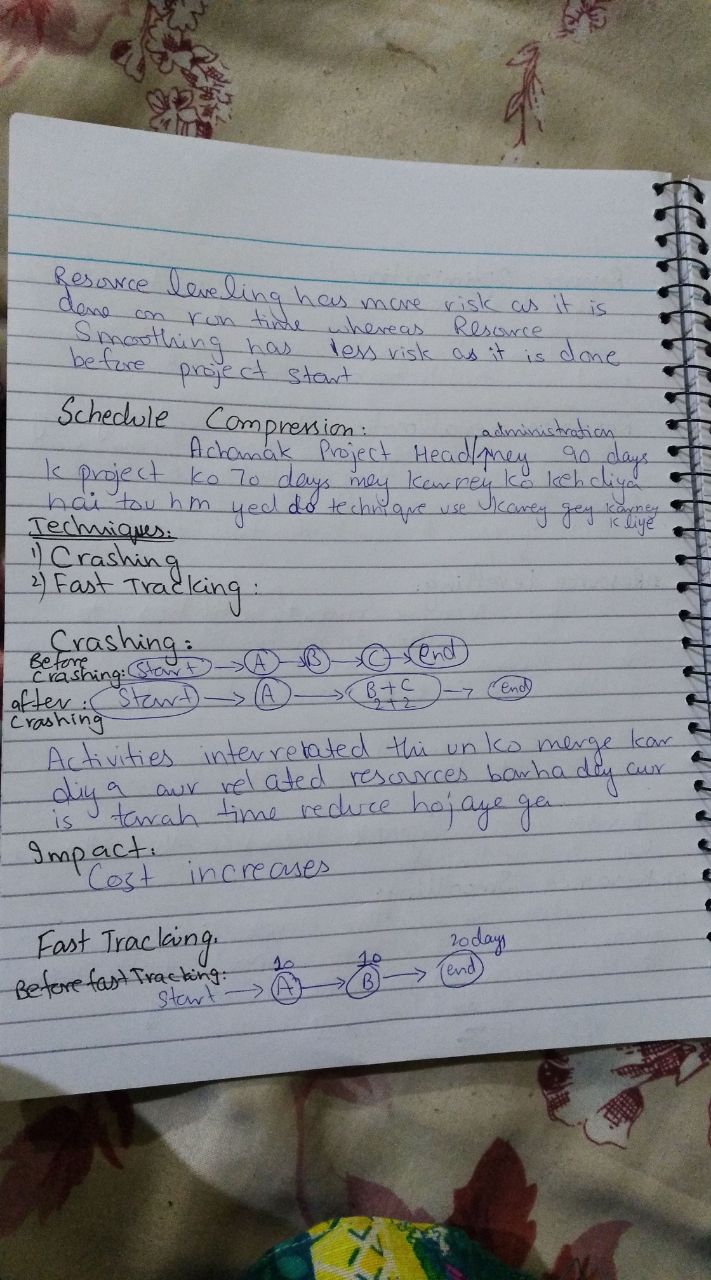 Resource leveling has more risk as it is
done on run time whereas Resource
Smoothing has less risk as it is done
before project start
Schedule Compression:
administration
Achanak Project Head/ney 90 days
k project ko 70 days mey karney ko keh diya
hai tou hm yed do technique use karey gey karney
k liye
Techniques:
1) Crashing
2) Fast Tracking:
Crashing:
Before
Crashing: Start → A → B → C → end
after: Start → A → B+C → end
Crashing 2+2
Activities interrelated thi unko merge kar
diya aur related resources barha dey aur
is tarah time reduce hojaye ga
Impact:
Cost increases
Fast Tracking.
10 10 20 days
Before fast Tracking:
Start → A → B → end